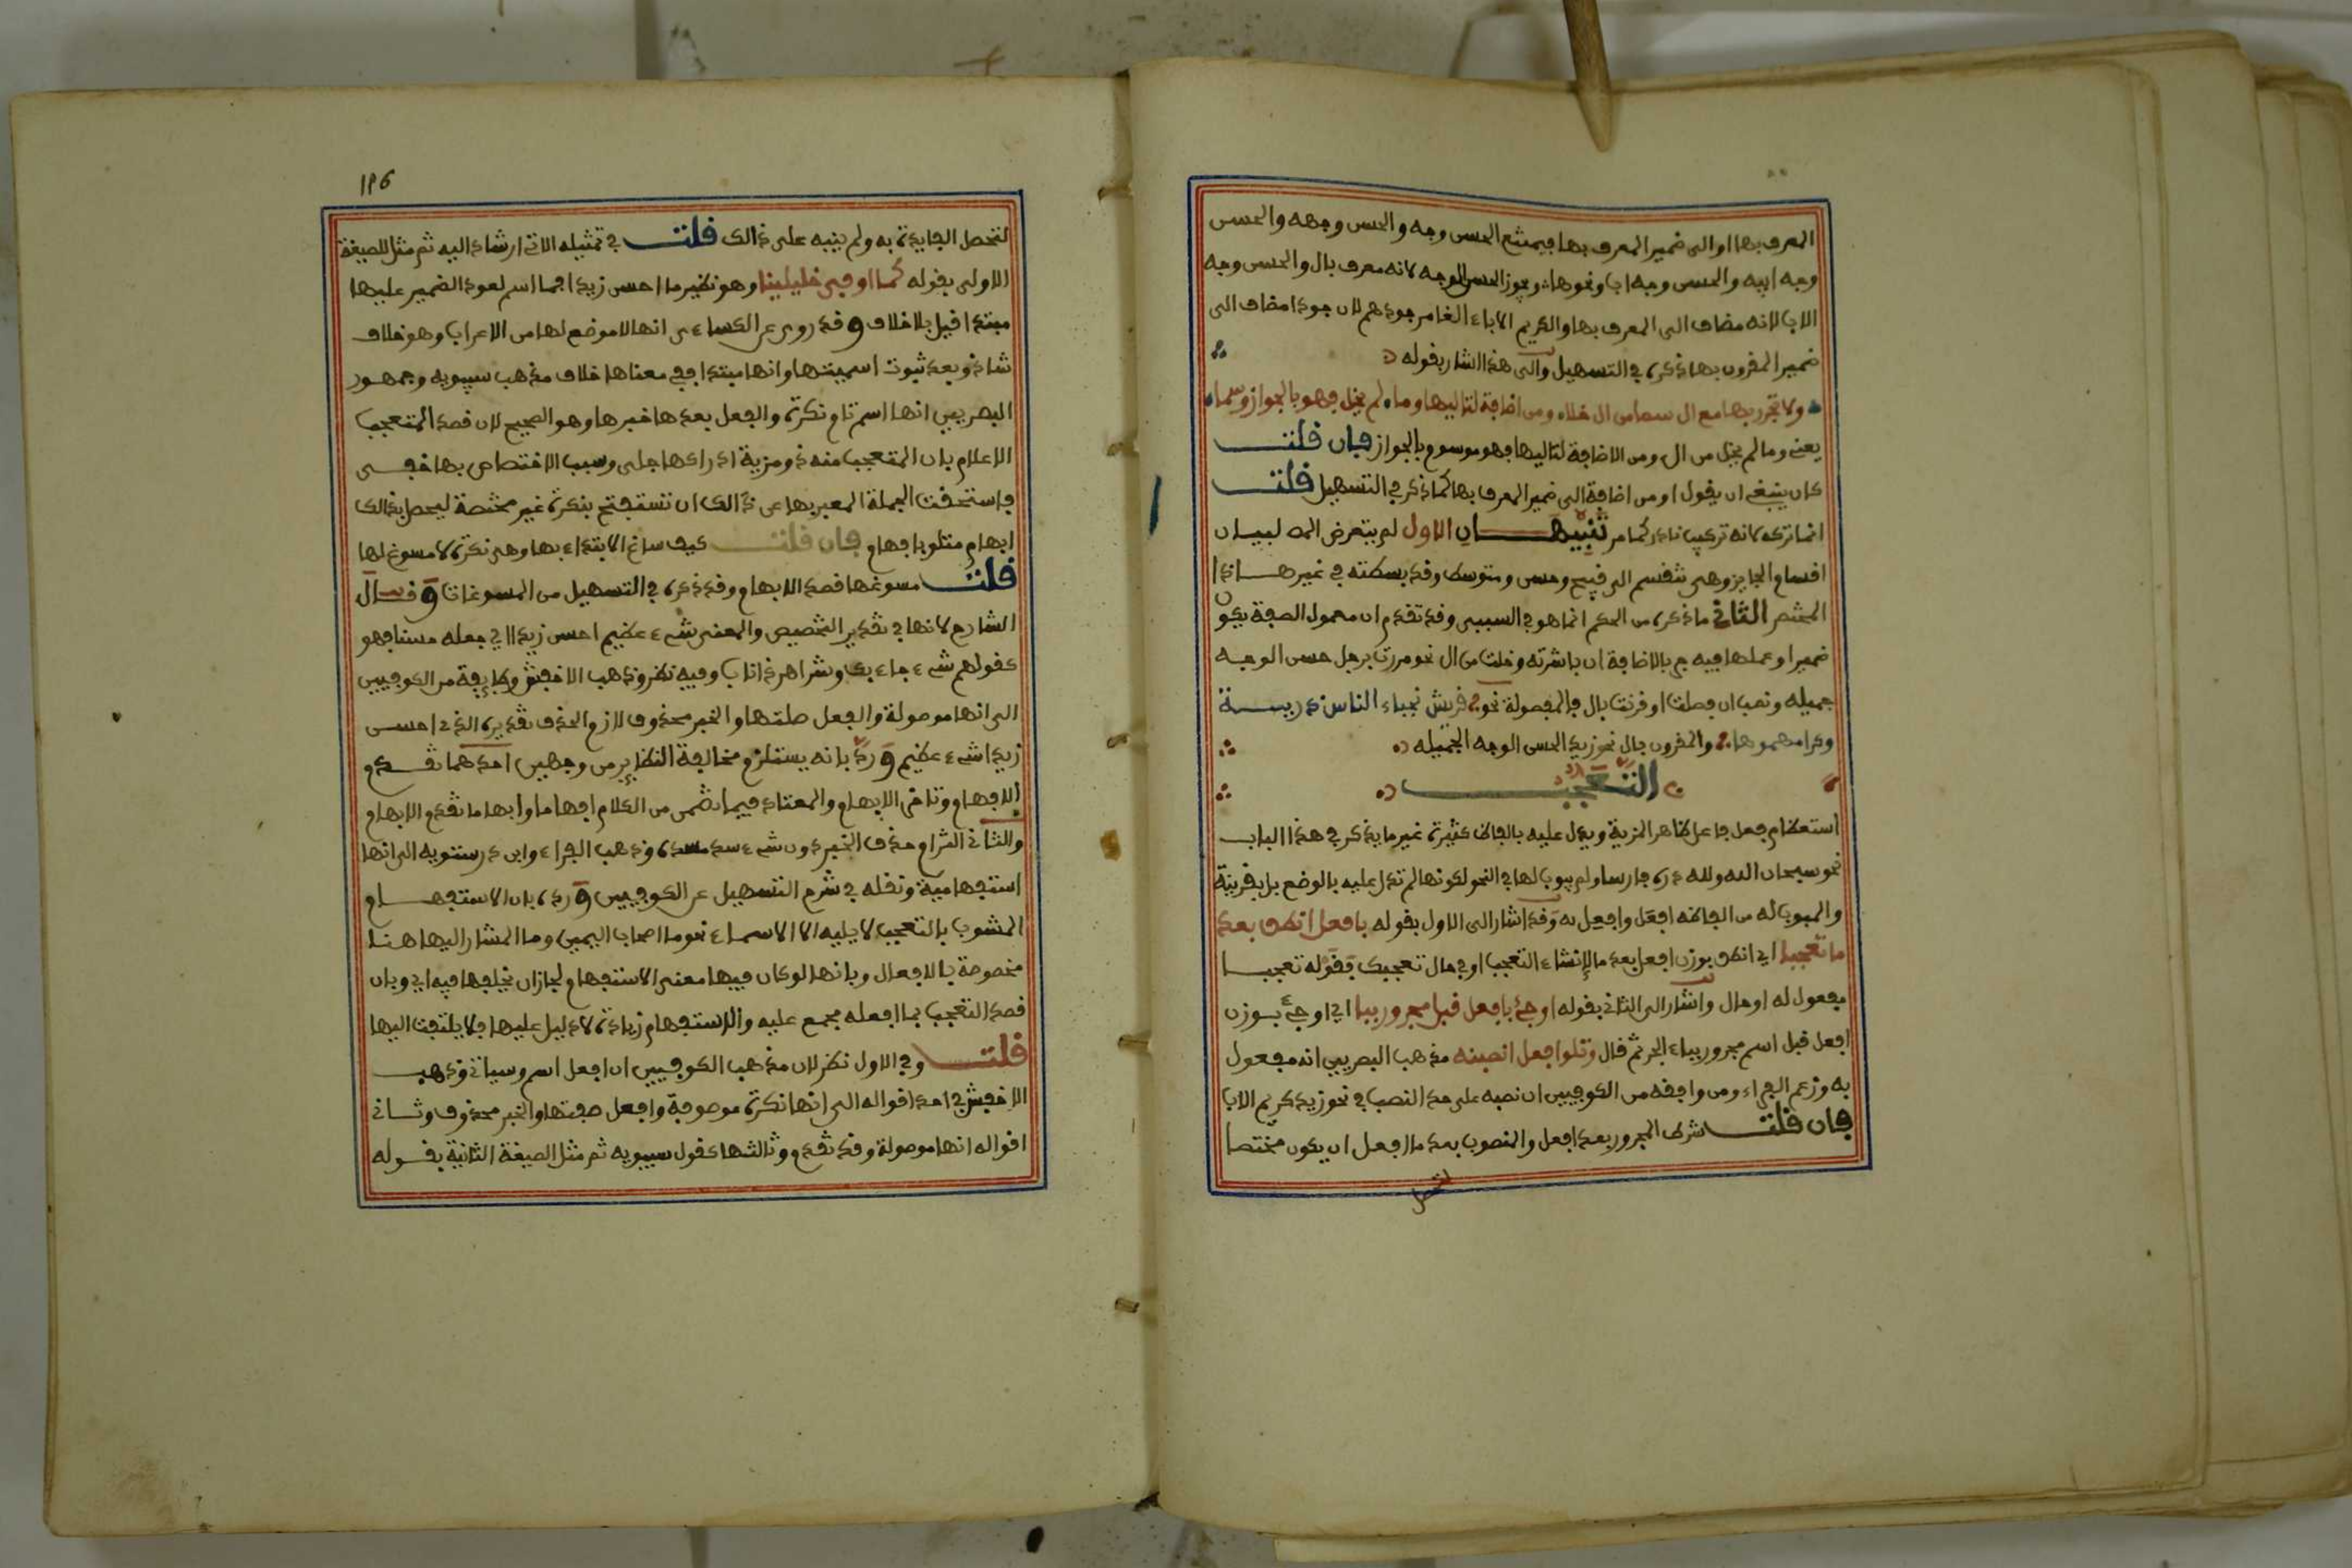 المعرف بها او الى ضمير المعرف بها فيمتنع الحسن وجه والحسن وجهه والحسن
وجه ابيه والحسن وجه اب ونحوها ويجوز الحسن الوجه لانه معرف بال والحسن وجه
الاب لانه مضاف الى المعرف بها والكريم الاباء الغامر جودهم لان جود امضاف الى
ضمير المقرون بها ذكره في التسهيل والى هذا اشار بقوله
ولا تجرر بها مع ال سما من ال خلا ومن اضافة لتاليها وما لم يخل فهو بالجواز وسما
يعني وما لم يخل من ال ومن الاضافة لتاليها فهو موسوم بالجواز فان قلت
كان ينبغي ان يقول او من اضافة الى ضمير المعرف بها كما ذكر في التسهيل قلت
انما تركه لانه تركيب نادر كما مر تنبيهان الاول لم يتعرض المص لبيان
اقسام الجايز وهي تنقسم الى قبيح وحسن ومتوسط وقد بسطته في غير هذا
المختصر الثاني ما ذكره من الحكم انما هو في السببي وقد تقدم ان معمول الصفة يكون
ضميرا وعملها فيه جر بالاضافة ان باشرته وخلت من ال نحو مررت برجل حسن الوجه
جميله ونصب ان فصلت او قرنت بال فالمفصولة نحو قريش نجباء الناس ذرية
وكرامهموها والمقرون بال نحو زيد الحسن الوجه الجميله
التعجب
استعظام فعل فاعل ظاهر المزية ويدل عليه بالفاظ كثيرة غير ما يذكر في هذا الباب
نحو سبحان الله ولله دره فارسا ولم يبوب لها في النحو لكونها لم تدل عليه بالوضع بل بقرينة
والمبوب له من الفاظه افعل وافعل به وقد اشار الى الاول بقوله بافعل انطق بعد
ما تعجبا اي انطق بوزن افعل بعد ما لانشاء التعجب او في حال تعجبك فقوله تعجبا
مفعول له او حال واشار الى الثاني بقوله او جئ بافعل قبل مجرور ببا اي او جئ بوزن
افعل قبل اسم مجرور بباء الجر ثم قال وتلو افعل انصبنه مذهب البصريين انه مفعول
به وزعم الفراء ومن وافقه من الكوفيين ان نصبه على حد النصب في نحو زيد كريم الاب
فان قلت شرط المجرور بعد افعل والمنصوب بعد ما افعل ان يكون مختصا
لتحصل
١٩6
لتحصل الفايدة به ولم ينبه على ذالك قلت في تمثيله الاتي ارشاد اليه ثم مثل للصيغة
الاولى بقوله كما اوفى خليلينا وهو نظير ما احسن زيدا فما اسم لعود الضمير عليها
مبتدا قيل بلا خلاف وقد روي عن الكساءي انها لا موضع لها من الاعراب وهو خلاف
شاذ وبعد ثبوت اسميتها وانها مبتدا ففي معناها خلاف مذهب سيبويه وجمهور
البصريين انها اسم تام نكرة والفعل بعدها خبرها وهو الصحيح لان قصد المتعجب
الاعلام بان المتعجب منه ذو مزية ادراكها جلي وسبب الاختصاص بها خفي
فاستحقت الجملة المعبر بها عن ذالك ان تستفتح بنكرة غير مختصة ليحصل بذالك
ابهام متلو بافهام فان قلت كيف ساغ الابتداء بها وهي نكرة لا مسوغ لها
قلت مسوغها قصد الابهام وقد ذكره في التسهيل من المسوغات وقال
الشارح لانها في تقدير التخصيص والمعنى شيء عظيم احسن زيدا اي جعله حسنا فهو
كقولهم شيء جاء بك وشر اهر ذا ناب وفيه نظر وذهب الاخفش وطايفة من الكوفيين
الى انها موصولة والفعل صلتها والخبر محذوف لازم الحذف تقديره الذي احسن
زيدا شيء عظيم ورد بانه يستلزم مخالفة النظاير من وجهين احدهما تقدم
الافهام وتاخر الابهام والمعتاد فيما تضمن من الكلام افهاما وابهاما تقدم الابهام
والثاني التزام حذف الخبر دون شيء سد مسده وذهب الفراء وابن درستويه الى انها
استفهامية ونقله في شرح التسهيل عن الكوفيين ورده بان الاستفهام
المشوب بالتعجب لا يليه الا الاسماء نحو ما اصحاب اليمين وما المشار اليها هنا
مخصوصة بالافعال وبانها لو كان فيها معنى الاستفهام لجاز ان يخلفها فيه اي وبان
قصد التعجب بما افعله مجمع عليه والاستفهام زيادة لا دليل عليها فلا يلتفت اليها
قلت وفي الاول نظر لان مذهب الكوفيين ان افعل اسم وسياتي وذهب
الاخفش في احد اقواله الى انها نكرة موصوفة وافعل صفتها والخبر محذوف وثاني
اقواله انها موصولة وقد تقدم وثالثها كقول سيبويه ثم مثل الصيغة الثانية بقوله